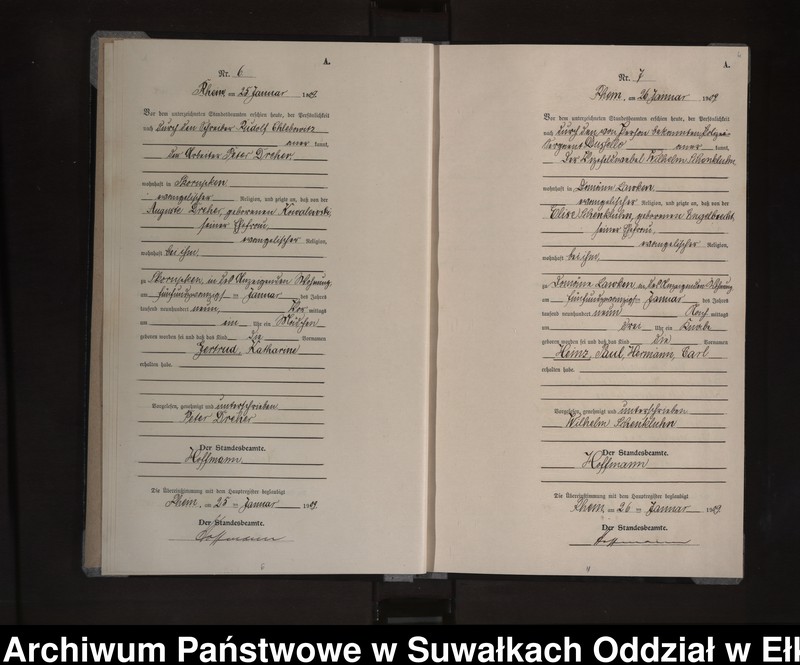 A.
Nr. 6
Rhein, am 25 Januar 1909.
Vor dem unterzeichneten Standesbeamten erschien heute, der Persönlichkeit
nach durch den Rudolf
kannt,
der Arbeiter Peter Dreher
wohnhaft in Skorupken
evangelischer Religion, und zeigte an, daß von der
Auguste Dreher, geborenen Kowalewski
seiner Ehefrau,
evangelischer Religion,
wohnhaft bei ihm,
zu Skorupken, in des Anzeigenden Wohnung
am fünfundzwanzigsten Januar des Jahres
tausend neunhundert neun, Vor mittags
um ein Uhr ein Mädchen
geboren worden sei und daß das Kind die Vornamen
Gertrud, Katharine
erhalten habe.
Vorgelesen, genehmigt und unterschrieben
Peter Dreher
Der Standesbeamte.
Hoffmann
Die Übereinstimmung mit dem Hauptregister beglaubigt
Rhein, am 25 ten Januar 1909.
Der Standesbeamte.
Hoffmann
6
A.
Nr. 7
Rhein, am 26 Januar 1909
Vor dem unterzeichneten Standesbeamten erschien heute, der Persönlichkeit
nach durch den von Person bekannten Polizei-
Sergeant kannt,
der Vizefeldwebel Wilhelm Schönkluhn
wohnhaft in Domäne Lawken
evangelischer Religion, und zeigte an, daß von der
Elise Schönkluhn, geborenen Engelbrecht
seiner Ehefrau,
evangelischer Religion,
wohnhaft bei ihm,
zu Domäne Lawken in des Anzeigenden Wohnung
am fünfundzwanzigsten Januar des Jahres
tausend neunhundert neun Nach mittags
um drei Uhr ein Knabe
geboren worden sei und daß das Kind die Vornamen
Heinz, Paul, Hermann, Carl
erhalten habe.
Vorgelesen, genehmigt und unterschrieben
Wilhelm Schönkluhn
Der Standesbeamte.
Hoffmann
Die Übereinstimmung mit dem Hauptregister beglaubigt
Rhein, am 26 ten Januar 1909.
Der Standesbeamte.
Hoffmann
Archiwum Państwowe w Suwałkach Oddział w Ełk